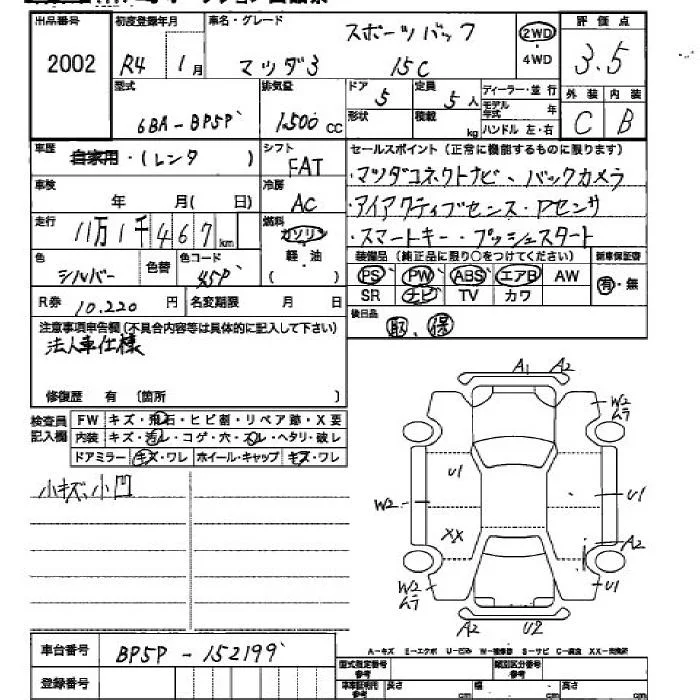 出品番号 2002
初度登録年月 R4 1月
車名・グレード マツダ3 スポーツバック 15C
2WD・4WD
評価点 3.5
外装 C 内装 B
型式 6BA-BP5P
排気量 1,500 cc
ドア 5
定員 5人
形状
積載 kg
ディーラー・並行
モデル年式 年
ハンドル 左・右
車歴 自家用・(レンタ)
シフト FAT
車検 年 月( 日)
冷房 AC
走行 11万1千467km
燃料 ガソリン 軽・油 ( )
色 シルバー 色替
色コード 45P
R券 10.220円
名変期限 月 日
セールスポイント (正常に機能するものに限ります)
・マツダコネクトナビ、バックカメラ
・アイアクティブセンス・Pセンサ
・スマートキー・プッシュスタート
装備品 (純正品に限り○をつけてください) 新車保証書
PS PW ABS エアB AW 有・無
SR ナビ TV カワ
後日品 取、保
注意事項申告欄 (不具合内容等は具体的に記入して下さい)
法人車仕様
修復歴 有 〔箇所 〕
検査員記入欄
FW キズ・飛石・ヒビ割・リペア跡・X要
内装 キズ・汚レ・コゲ・穴・スレ・ヘタリ・破レ
ドアミラー キズ・ワレ ホイール・キャップ キズ・ワレ
小キズ、小凹
A1 A2
W2
ムラ
U1
W2
U1
XX
A2
W2
ムラ
U1
A2 U2
A-キズ E-エクボ U-凹み W-補修跡 S-サビ C-腐食 XX-交換済
車台番号 BP5P-152199
登録番号
型式指定番号 参考
類別区分番号 参考
車庫証明用 参考 長さ cm 幅 cm 高さ cm